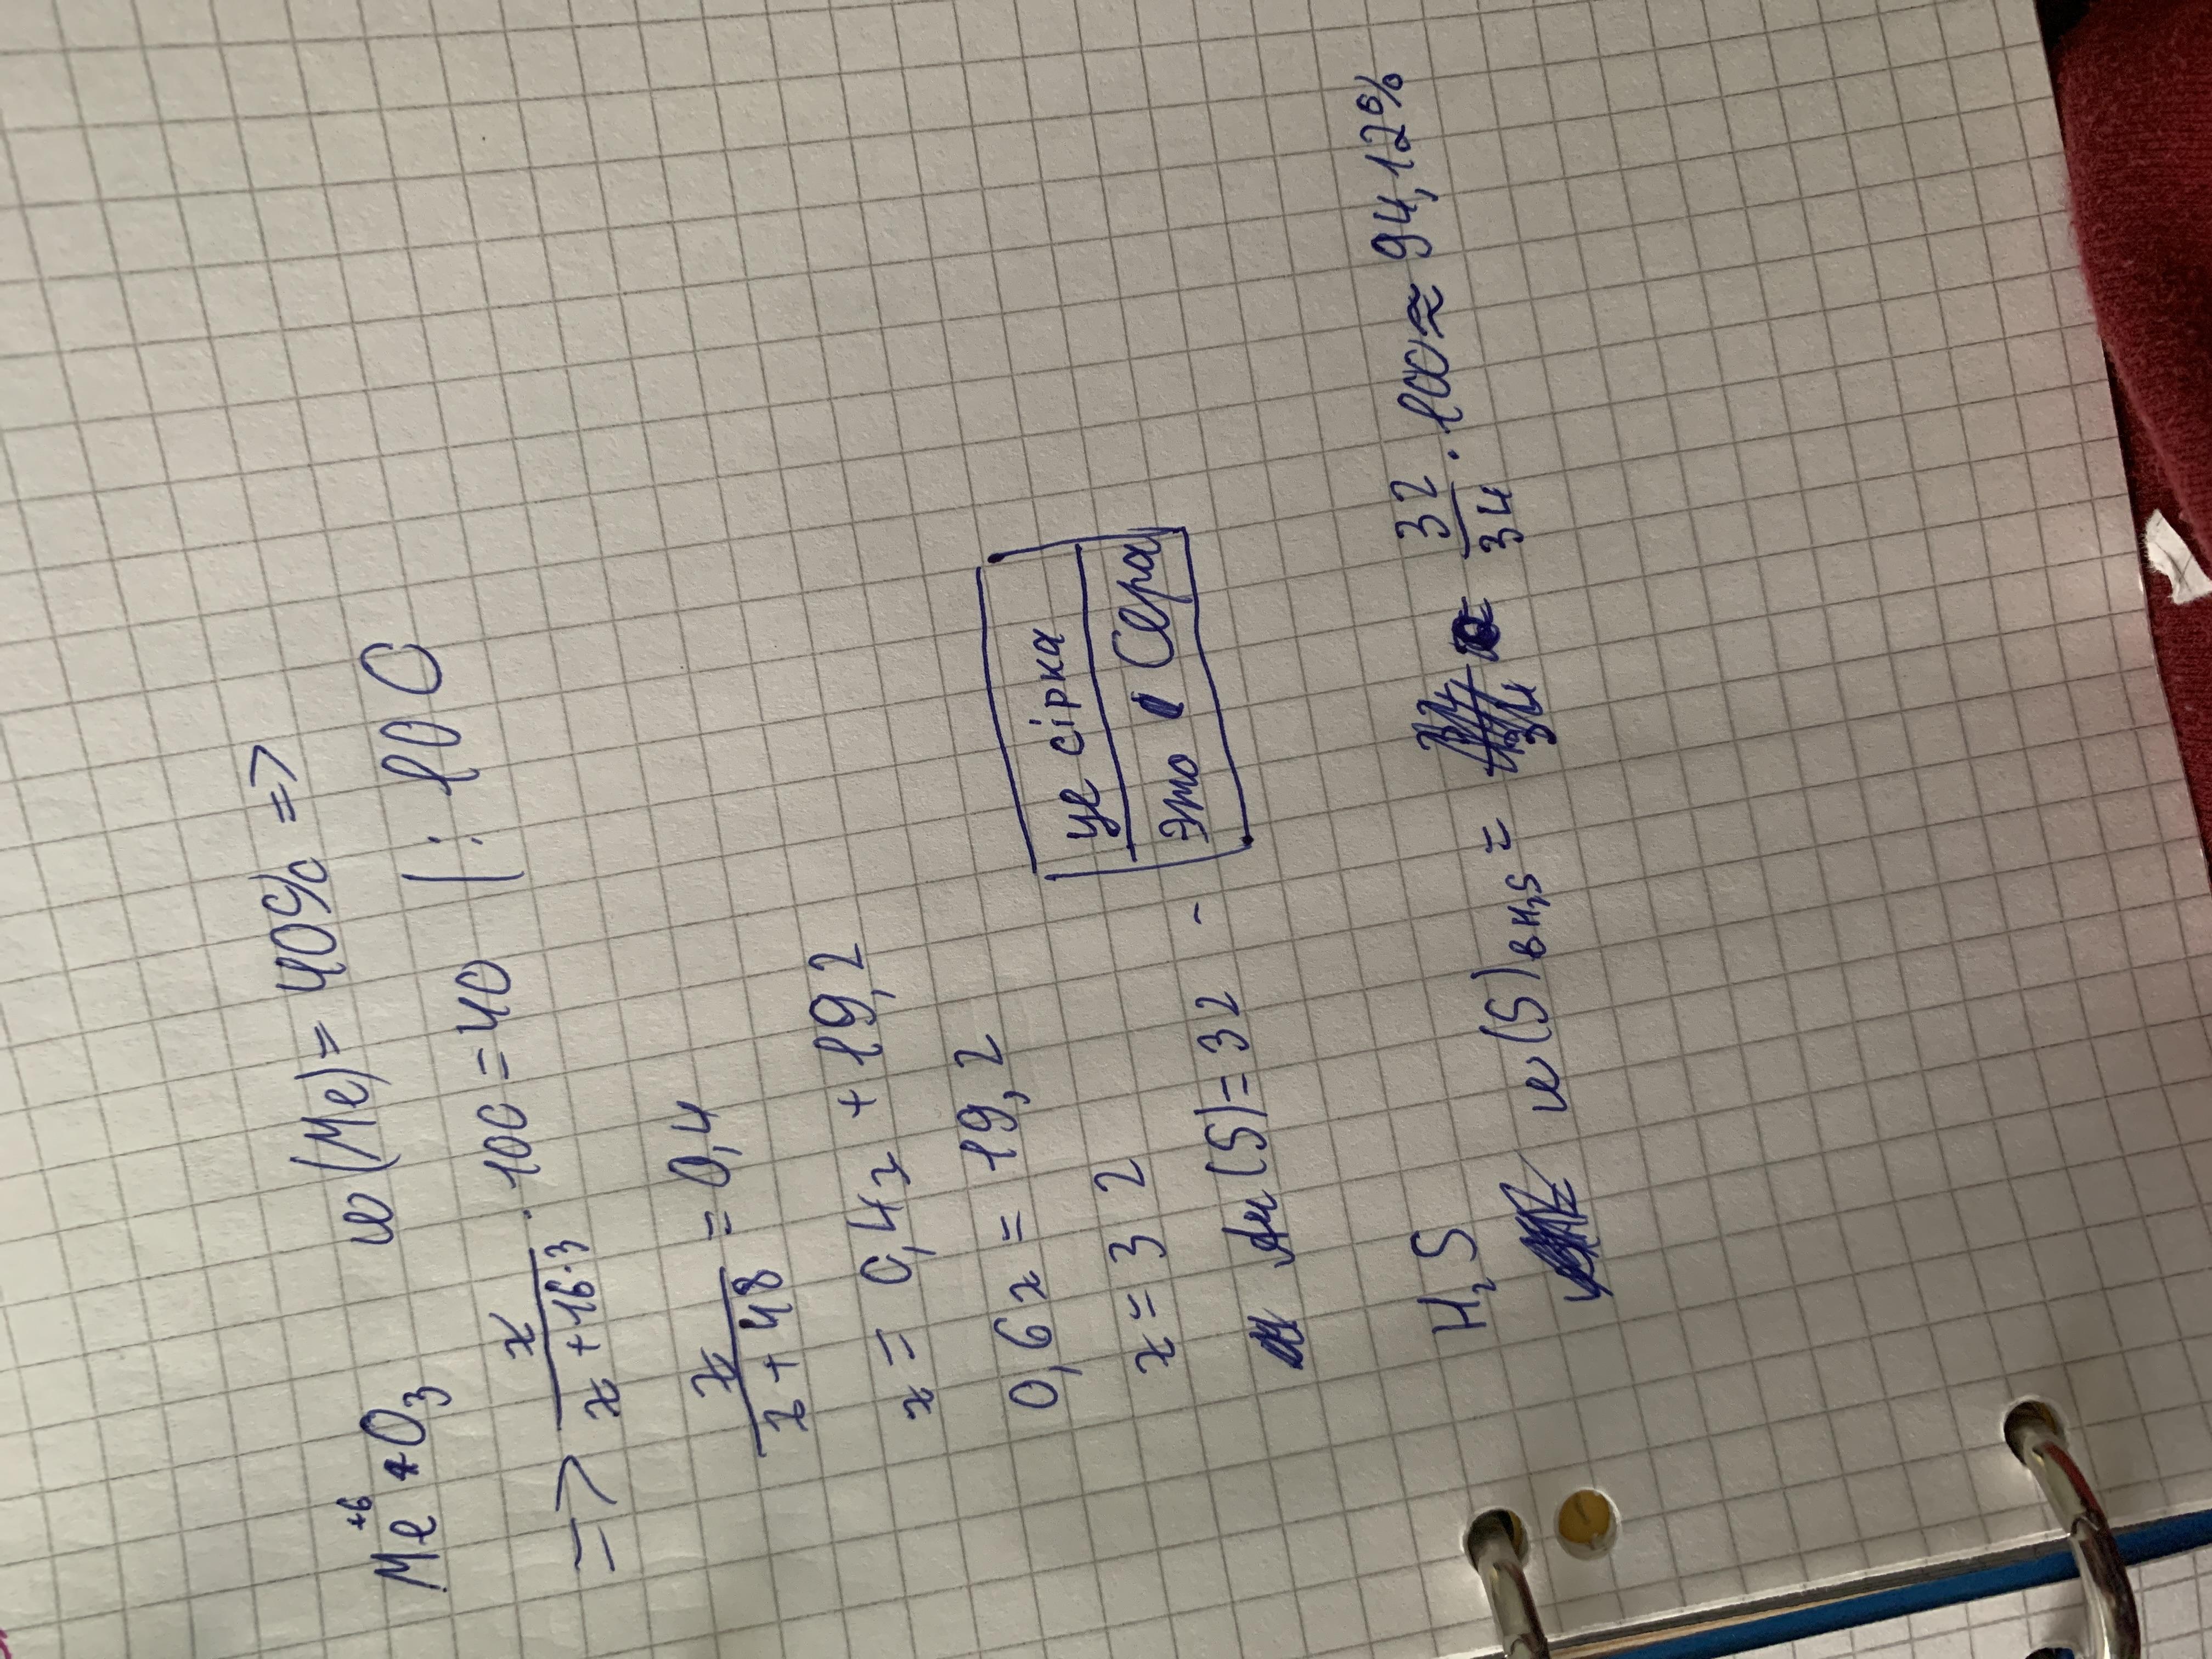 Me⁺⁶O₃ w(Me) = 40% =>
=> x/(x+16·3) · 100 = 40 |: 100
x/(x+48) = 0,4
x = 0,4x + 19,2
0,6x = 19,2
x = 32
(S) = 32 -
це сірка
это Сера
H₂S
w(S) в H₂S = = 32/34 · 100 ≈ 94,12%